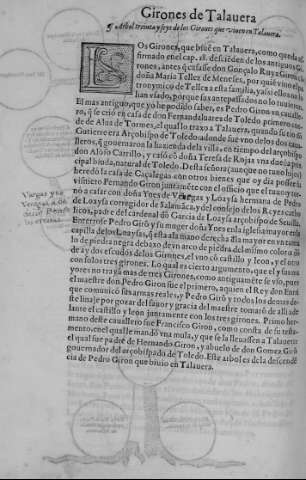 Girones de Talauera
¶ Arbol treinta y seys de los Girones que viuen en Talauera.
LOs Girones, que biuẽ en Talauera, como queda af
firmado en el cap. 18. desciẽden de los antiguos Gi-
rones, antes q̃ casasse don Gonçalo Ruyz Giron cõ
doña Maria Tellez de Meneses, por quiẽ vino el pa
tronymico de Tellez a esta familia, ya si ellos no lo
han vsado, porque sus antepassados no lo tuuieron.
El mas antiguo, que yo he podido saber, es Pedro Giron en cauallе-
ro, q̃ se crio en casa de don Fernandaluarez de Toledo primero con-
de de Alua de Tormes, el qual lo traxo a Talauera, quando su tio dõ
Gutierre era Arçobispo de Toledo adonde fue vno de los caua-
lleros, q̃ gouernaron la hazienda de la villa, en tiempo del arçobispo
don Alõso Carrillo, y casò cõ doña Teresa de Rojas vna dueña prin
cipal biuda, natural de Toledo. Desta señora (aunque no tuuo hijos)
heredò la casa de Caçalegas con otros bienes que oy dia possee su
visnieto Fernando Giron juntamẽte con el officio que el tuuo, tor-
nò a casar con doña Ynes de Vargas y Loaysa hermana de Pedro
de Loaysa corregidor de Salamãca, y del consejo de los Reyes catho
licos, padre del cardenal dõ Garcia de Loaysa arçobispo de Seuilla.
Enterrose Pedro Girõ y su muger doña Ynes en la iglesia mayor en la
capilla de los Loaysas, q̃ esta a la mano derecha. Esta mayor en vn tumu
lo de piedra negra debaxo de vn arco de piedra del mismo color a dõ
de ay dos escudos de los Girones, el vno cõ castillo y leon, y el otro
con solos tres girones. Lo qual es cierto argumento, que el y sus ma
yores no trayã mas de tres Girones, como antiguamẽte se vsò, pues
el maestre don Pedro Giron fue el primero, a quien el Rey don Enrri
que comunicò sus armas reales, y Pedro Girõ y todos los demas de-
ste linaje por gozar del fauor y gracia del maestre tomarõ de alli ade
lante el castillo y leon juntamente con los tres girones. Primo her-
mano deste cauallero fue Francisco Giron, como consta de su testa-
mento, en el qual le manda vna mula, y que se la lleuassen a Talauera:
el qual fue padre de Hernando Giron, y abuelo de don Gomez Girõ
gouernador del arçobispado de Toledo. Este arbol es de la descendẽ
cia de Pedro Giron que biuio en Talauera.
Vargas y no